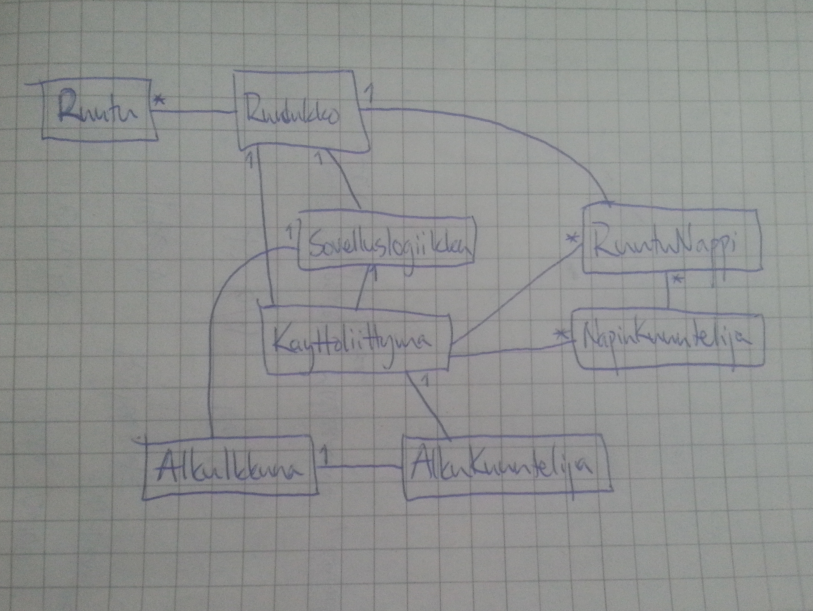 Ruutu
*
Ruudukko
1
1
1
1
Sovelluslogiikka
1
*
RuutuNappi
*
Kayttoliittyma
*
NapinKuuntelija
1
AlkuIkkuna
1
AlkuKuuntelija